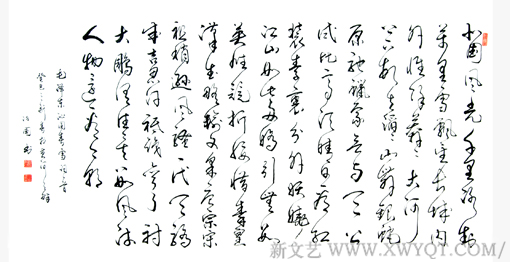 北国风光千里冰封
万里雪飘望长城内
外惟馀莽莽大河
上下顿失滔滔山舞银蛇
原驰蜡象欲与天公
试比高须晴日看红
装素裹分外妖娆
江山如此多娇引无数
英雄竞折腰惜秦皇
汉武略输文采唐宗宋
祖稍逊风骚一代天骄
成吉思汗只识弯弓射
大雕俱往矣数风流
人物还看今朝
毛泽东沁园春雪词一首
新文艺 www.XWYQT.COM/